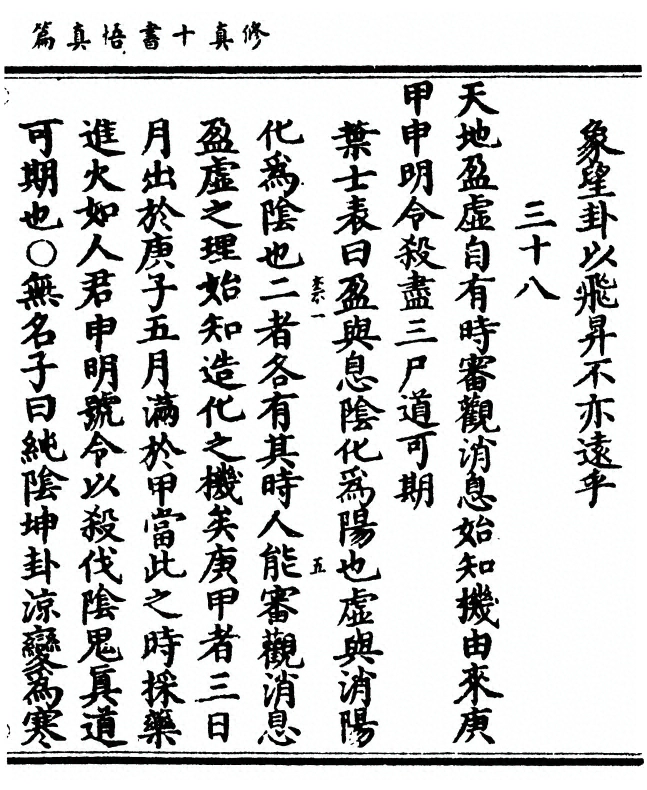 修真十書悟真篇
象望卦以飛昇不亦遠乎
三十八
天地盈虛自有時審觀消息始知機由來庚
甲申明令殺盡三尸道可期
葉士表曰盈與息陰化為陽也虛與消陽
化為陰也二者各有其時人能審觀消息
盈虛之理始知造化之機矣庚甲者三日
月出於庚子五月滿於甲當此之時採藥
進火如人君申明號令以殺伐陰鬼真道
可期也〇無名子曰純陰坤卦涼變為寒
五